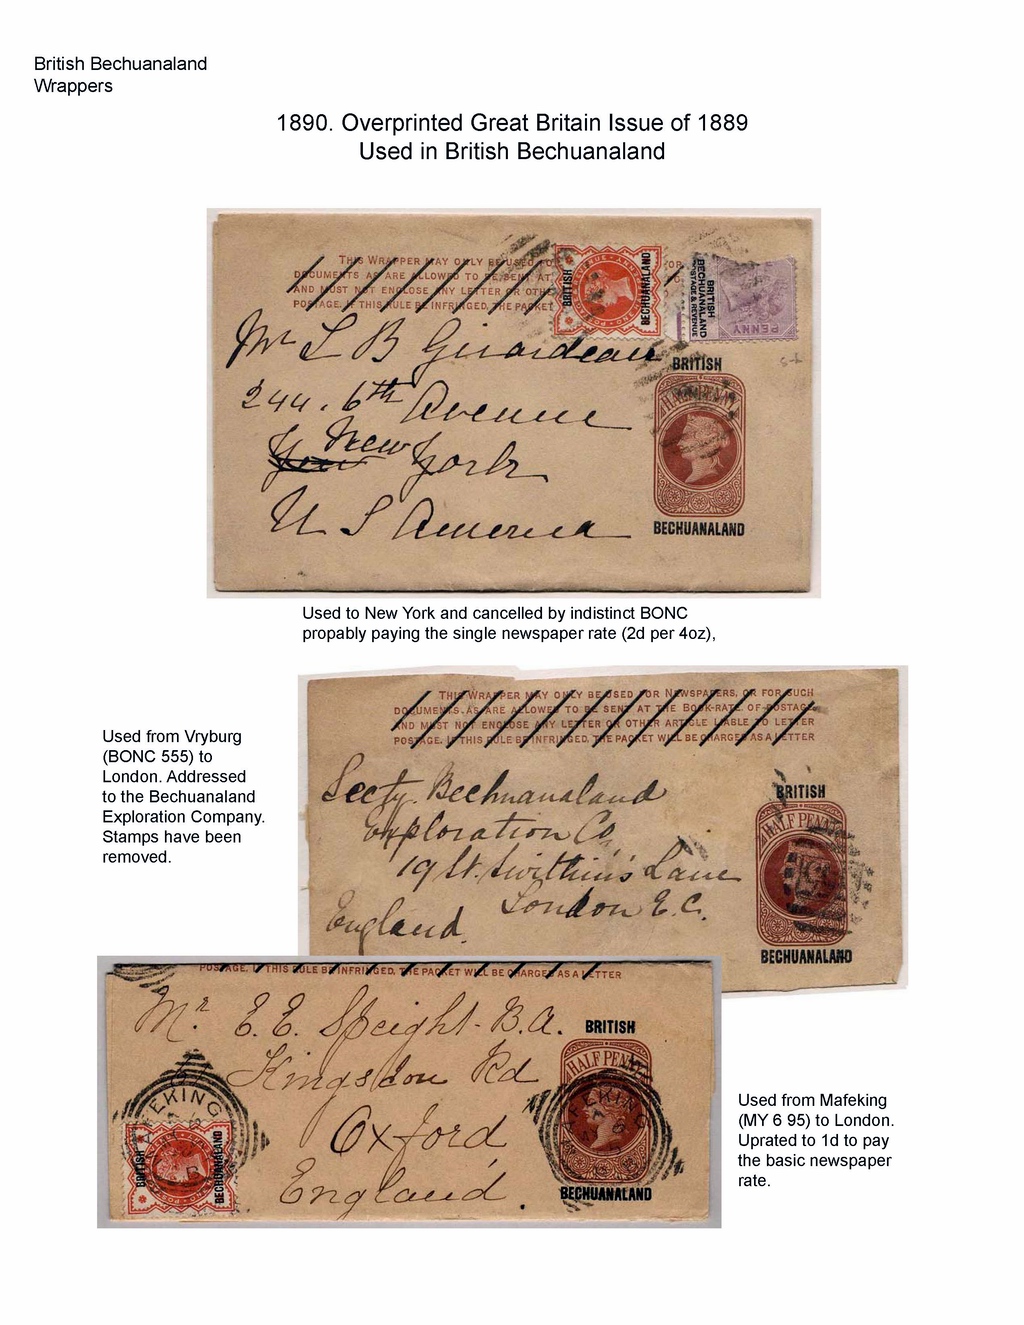 British Bechuanaland
Wrappers
1890. Overprinted Great Britain Issue of 1889
Used in British Bechuanaland
THIS WRAPPER MAY ONLY BE USED FOR
DOCUMENTS AS ARE ALLOWED TO BE SENT AT
AND MUST NOT ENCLOSE ANY LETTER OR OTHE
POSTAGE. IF THIS RULE BE INFRINGED, THE PACKET
BRITISH
BECHUANALAND
BRITISH
BECHUANALAND
POSTAGE & REVENUE
PENNY
Mr L B Girardeau
244. 6th Avenue
New York
U S America
BRITISH
HALF PENNY
BECHUANALAND
Used to New York and cancelled by indistinct BONC
propably paying the single newspaper rate (2d per 4oz),
THIS WRAPPER MAY ONLY BE USED FOR NEWSPAPERS, OR FOR SUCH
DOCUMENTS AS ARE ALLOWED TO BE SENT AT THE BOOK-RATE OF POSTAG
AND MUST NOT ENCLOSE ANY LETTER OR OTHER ARTICLE LIABLE TO LETTER
POSTAGE. IF THIS RULE BE INFRINGED, THE PACKET WILL BE CHARGED AS A LETTER
Secty. Bechuanaland
Exploration Co
19 St. Swithin's Lane
London E.C.
England.
BRITISH
HALF PENNY
BECHUANALAND
Used from Vryburg
(BONC 555) to
London. Addressed
to the Bechuanaland
Exploration Company.
Stamps have been
removed.
POSTAGE. IF THIS RULE BE INFRINGED, THE PACKET WILL BE CHARGED AS A LETTER
Mr. E. E. Speight. B.A.
Kingsdon Rd
Oxford
England.
MAFEKING
BRITISH
BECHUANALAND
BRITISH
HALF PENNY
MAFEKING
BECHUANALAND
Used from Mafeking
(MY 6 95) to London.
Uprated to 1d to pay
the basic newspaper
rate.